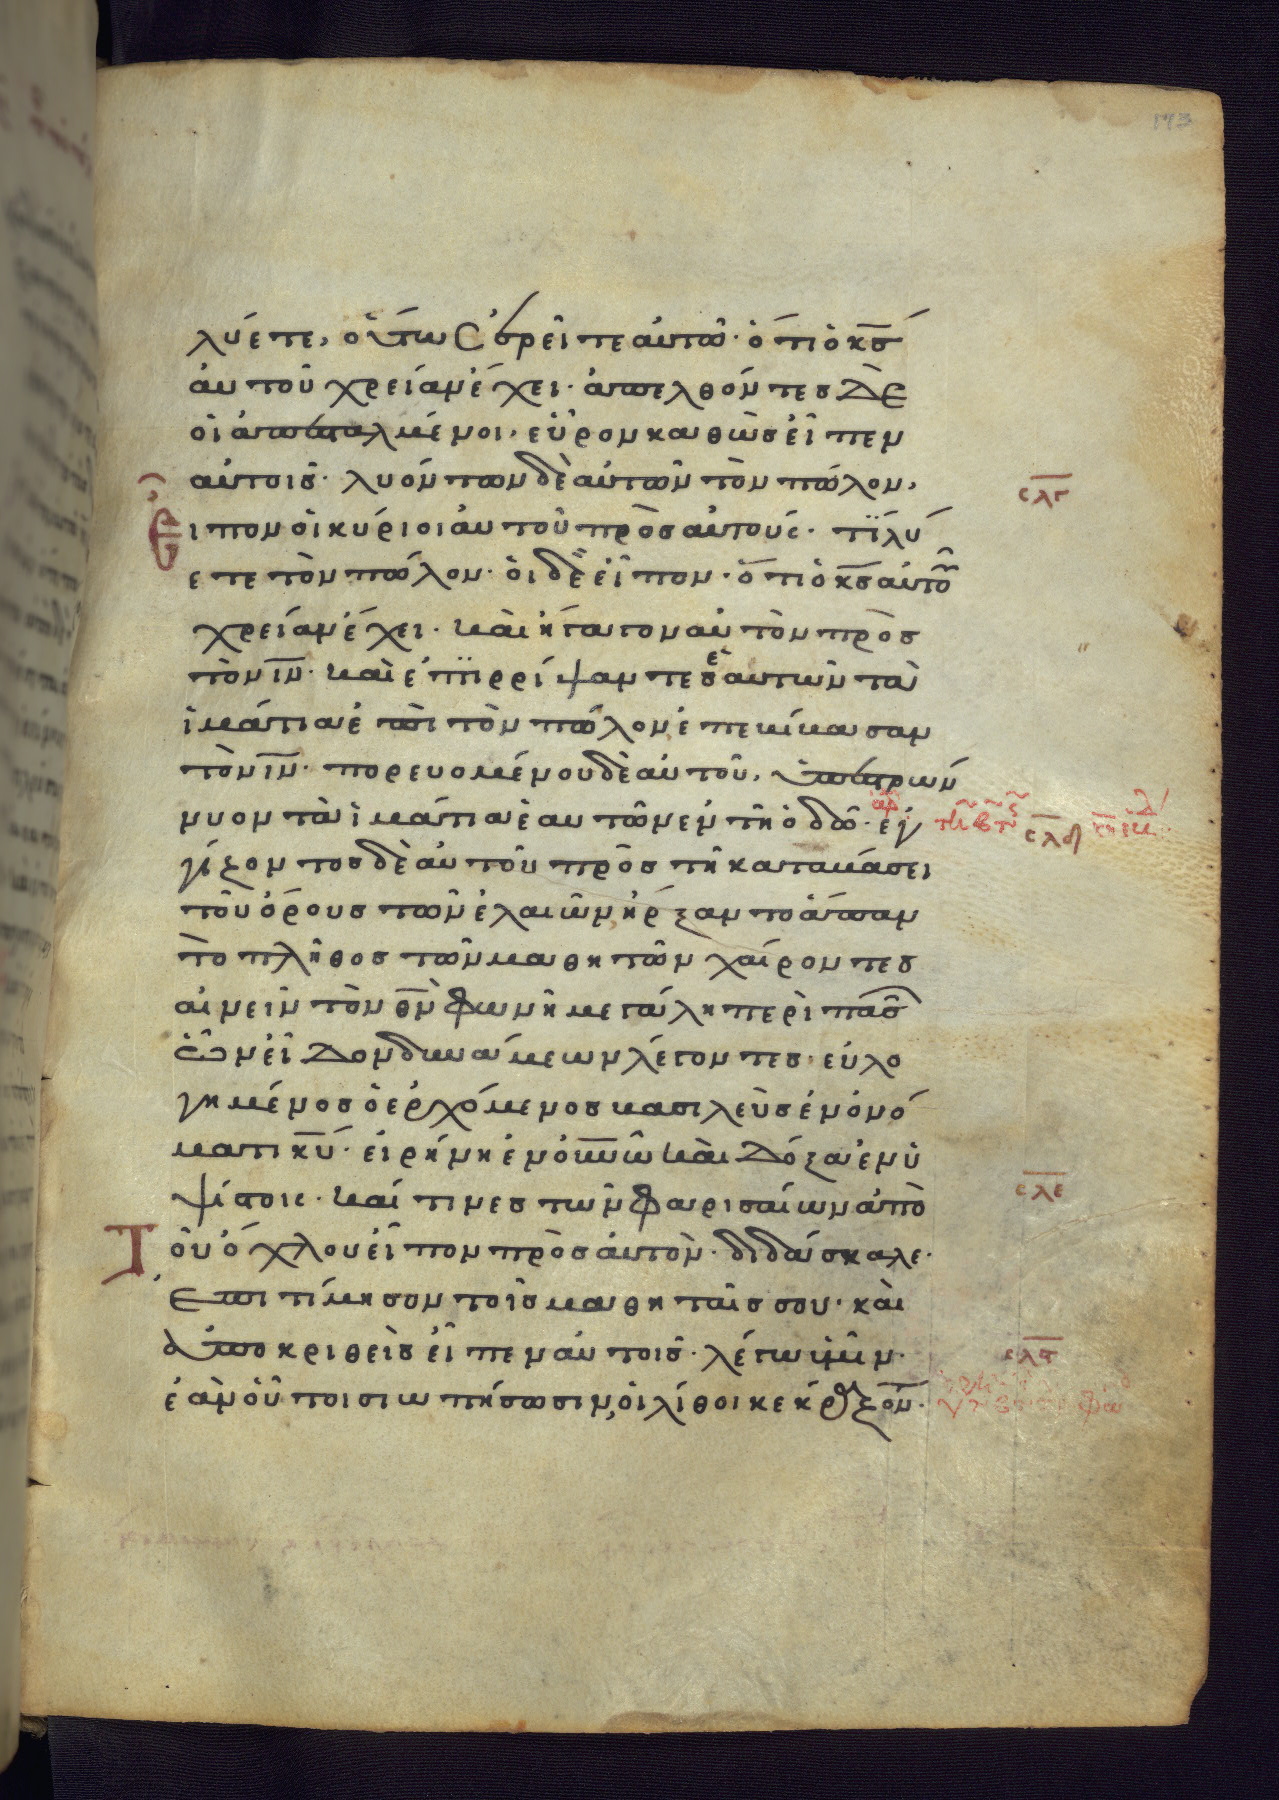 193
λύετε, οὕτως ἐρεῖτε αὐτῶ· ὅτι ὁ κς
αὐτοῦ χρείαν ἔχει· ἀπελθόντες δὲ
οἱ ἀπεσταλμένοι, εὗρον καθὼς εἶπεν
αὐτοῖς· λυόντων δὲ αὐτῶν τὸν πῶλον,
σλγ
εἶπον οἱ κύριοι αὐτοῦ πρὸς αὐτούς· τί λύ
ετε τὸν πῶλον· οἱ δὲ εἶπον· ὅτι ὁ κς αὐτοῦ
χρείαν ἔχει· καὶ ἤγαγον αὐτὸν πρὸς
τὸν ιν· καὶ ἐπιρρίψαντες ἑαυτῶν τὰ
ἱμάτια ἐπὶ τὸν πῶλον ἐπεβίβασαν
τὸν ιν· πορευομένου δὲ αὐτοῦ, ὑπεστρών
νυον τὰ ἱμάτια ἑαυτῶν ἐν τῆ ὁδῶ· ἐγ
σλδ
γίζοντος δὲ αὐτοῦ πρὸς τῆ καταβάσει
τοῦ ὄρους τῶν ἐλαιῶν ἤρξαντο ἅπαν
τὸ πλῆθος τῶν μαθητῶν χαίροντες
αἰνεῖν τὸν θν φωνῆ μεγάλη περὶ πασῶν
ὧν εἶδον δυνάμεων λέγοντες· εὐλο
γημένος ὁ ἐρχόμενος βασιλεὺς ἐν ὀνό
ματι κυ· εἰρήνη ἐν οὐνω καὶ δόξα ἐν ὑ
ψίστοις· καί τινες τῶν φαρισαίων ἀπὸ
σλε
τοῦ ὄχλου εἶπον πρὸς αὐτὸν· διδάσκαλε·
ἐπιτίμησον τοῖς μαθηταῖς σου· καὶ
ἀποκριθεὶς εἶπεν αὐτοῖς· λέγω ὑμῖν·
σλς
ἐὰν οὗτοι σιωπήσωσιν, οἱ λίθοι κεκράξον·